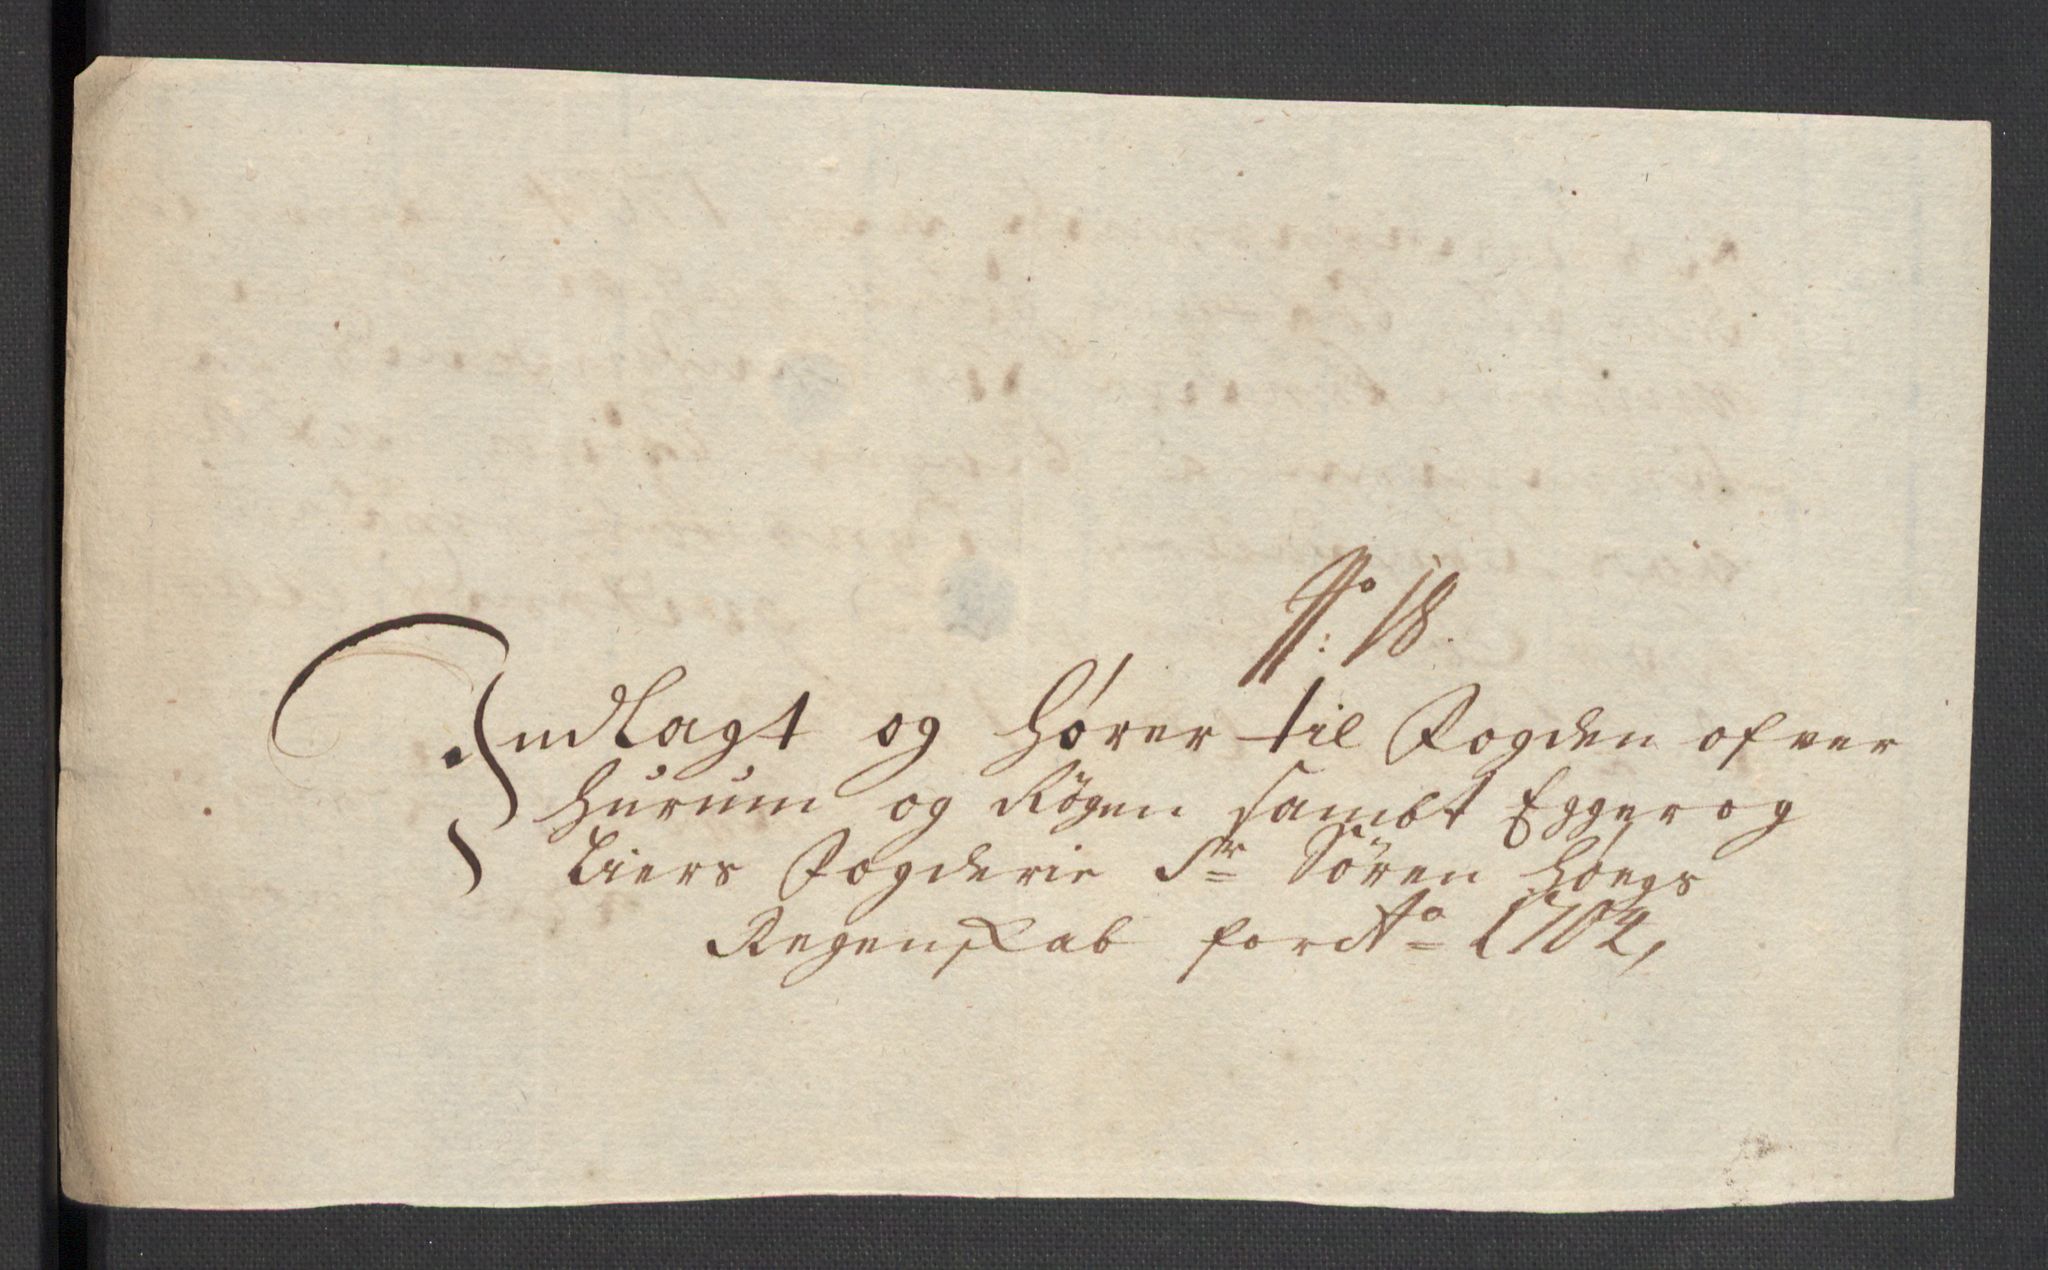 No: 18.
Indlagt og hører til Fogden ofver
Hurum og Røgen sambt Egger og
Liers Fogderie Sr Søren Høegs
Regenskab for Ao 1704,